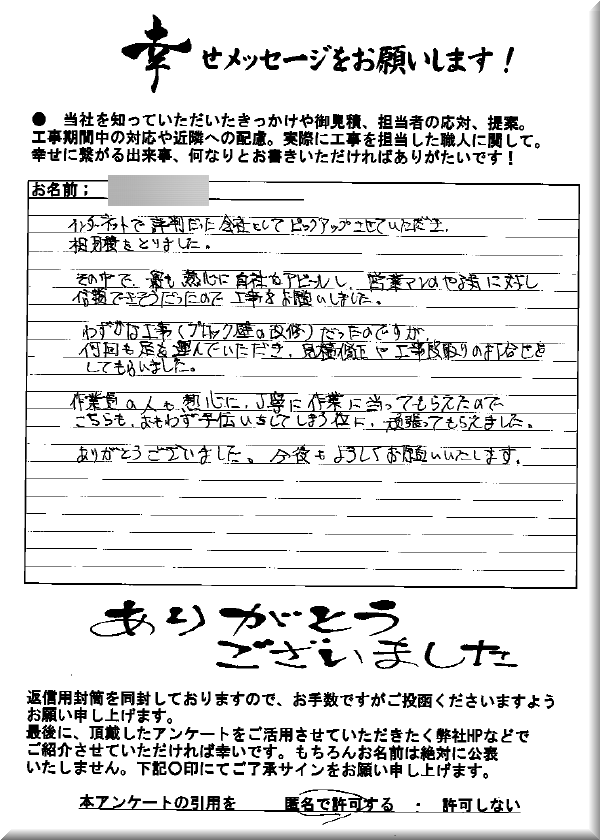 幸せメッセージをお願いします！
● 当社を知っていただいたきっかけや御見積、担当者の応対、提案。
工事期間中の対応や近隣への配慮。実際に工事を担当した職人に関して。
幸せに繋がる出来事、何なりとお書きいただければありがたいです！
お名前；
インターネットで評判だった会社としてピックアップさせていただき、
相見積をとりました。
その中で、最も熱心に自社をアピールし、営業マンのやる気に対し
信頼できそうだったので工事をお願いしました。
わずかな工事(ブロック塀の改修)だったのですが
何回も足を運んでいただき、見積修正や工事段取りの打合せを
してもらいました。
作業員の人も熱心に、丁寧に作業に当ってもらえたので
こちらも、おもわず手伝いをしてしまう位に、頑張ってもらえました。
ありがとうございました。今後もよろしくお願いいたします。
ありがとう
ございました
返信用封筒を同封しておりますので、お手数ですがご投函くださいますよう
お願い申し上げます。
最後に、頂戴したアンケートをご活用させていただきたく弊社HPなどで
ご紹介させていただければ幸いです。もちろんお名前は絶対に公表
いたしません。下記〇印にてご了承サインをお願い申し上げます。
本アンケートの引用を 匿名で許可する ・ 許可しない